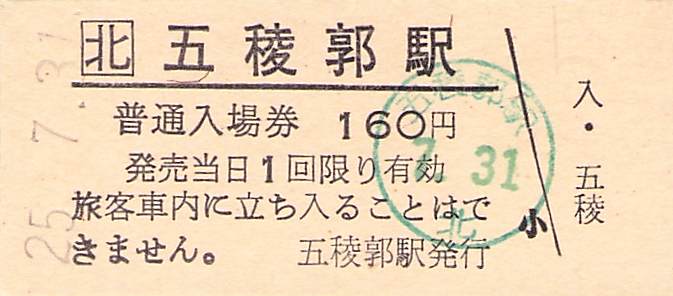 北 五稜郭駅
普通入場券 160円
発売当日1回限り有効
旅客車内に立ち入ることはで
きません。 五稜郭駅発行
小
入・五稜
25.7.31
五稜郭駅
7.31
北